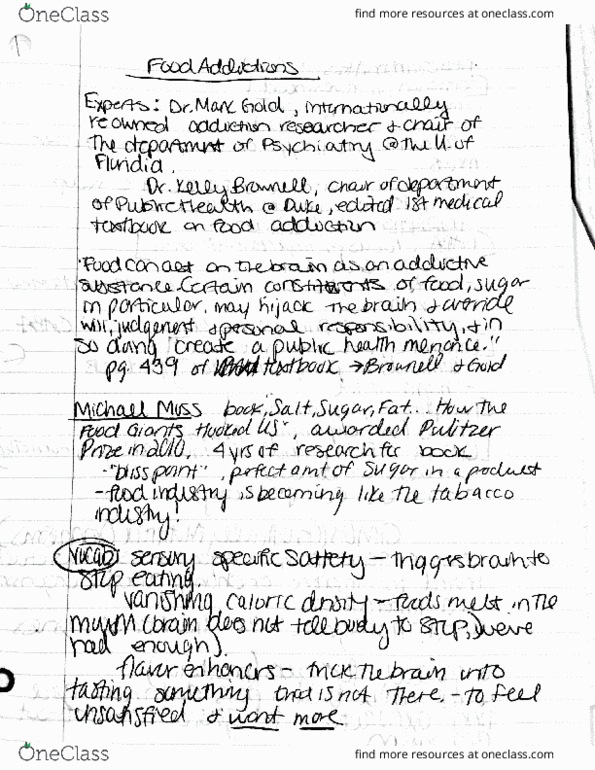 OneClass
find more resources at oneclass.com
1
Food Addictions
Experts: Dr. Mark Gold, internationally
reowned addiction researcher & chair of
The department of Psychiatry @ The U. of
Fluridia.
Dr. Kelly Brownell, chair of department
of Public Health @ Duke, edited 1st medical
textbook on food addiction
"Food can act on the brain as an addictive
substance. Certain constituents of food, sugar
in particular, may hijack the brain & override
will, judgement & personal responsibility, & in
so doing create a public health menance."
pg. 439 of textbook → Brownell & Gold
Michael Moss book, Salt, Sugar, Fat.. How the
Food Giants Hooked Us", awarded Pulitzer
Prize in 2010, 4 yrs of research for book
- "bliss point", perfect amt of sugar in a product
- food industry is becoming like the tabacco
industry!
Vocab sensory specific satiety - triggers brain to
stop eating.
vanishing caloric density - foods melt in the
mouth (brain does not tell body to stop, we've
had enough).
flavor enhancers - trick the brain into
tasting something that is not there. - to feel
unsatisfied & want more
OneClass
find more resources at oneclass.com